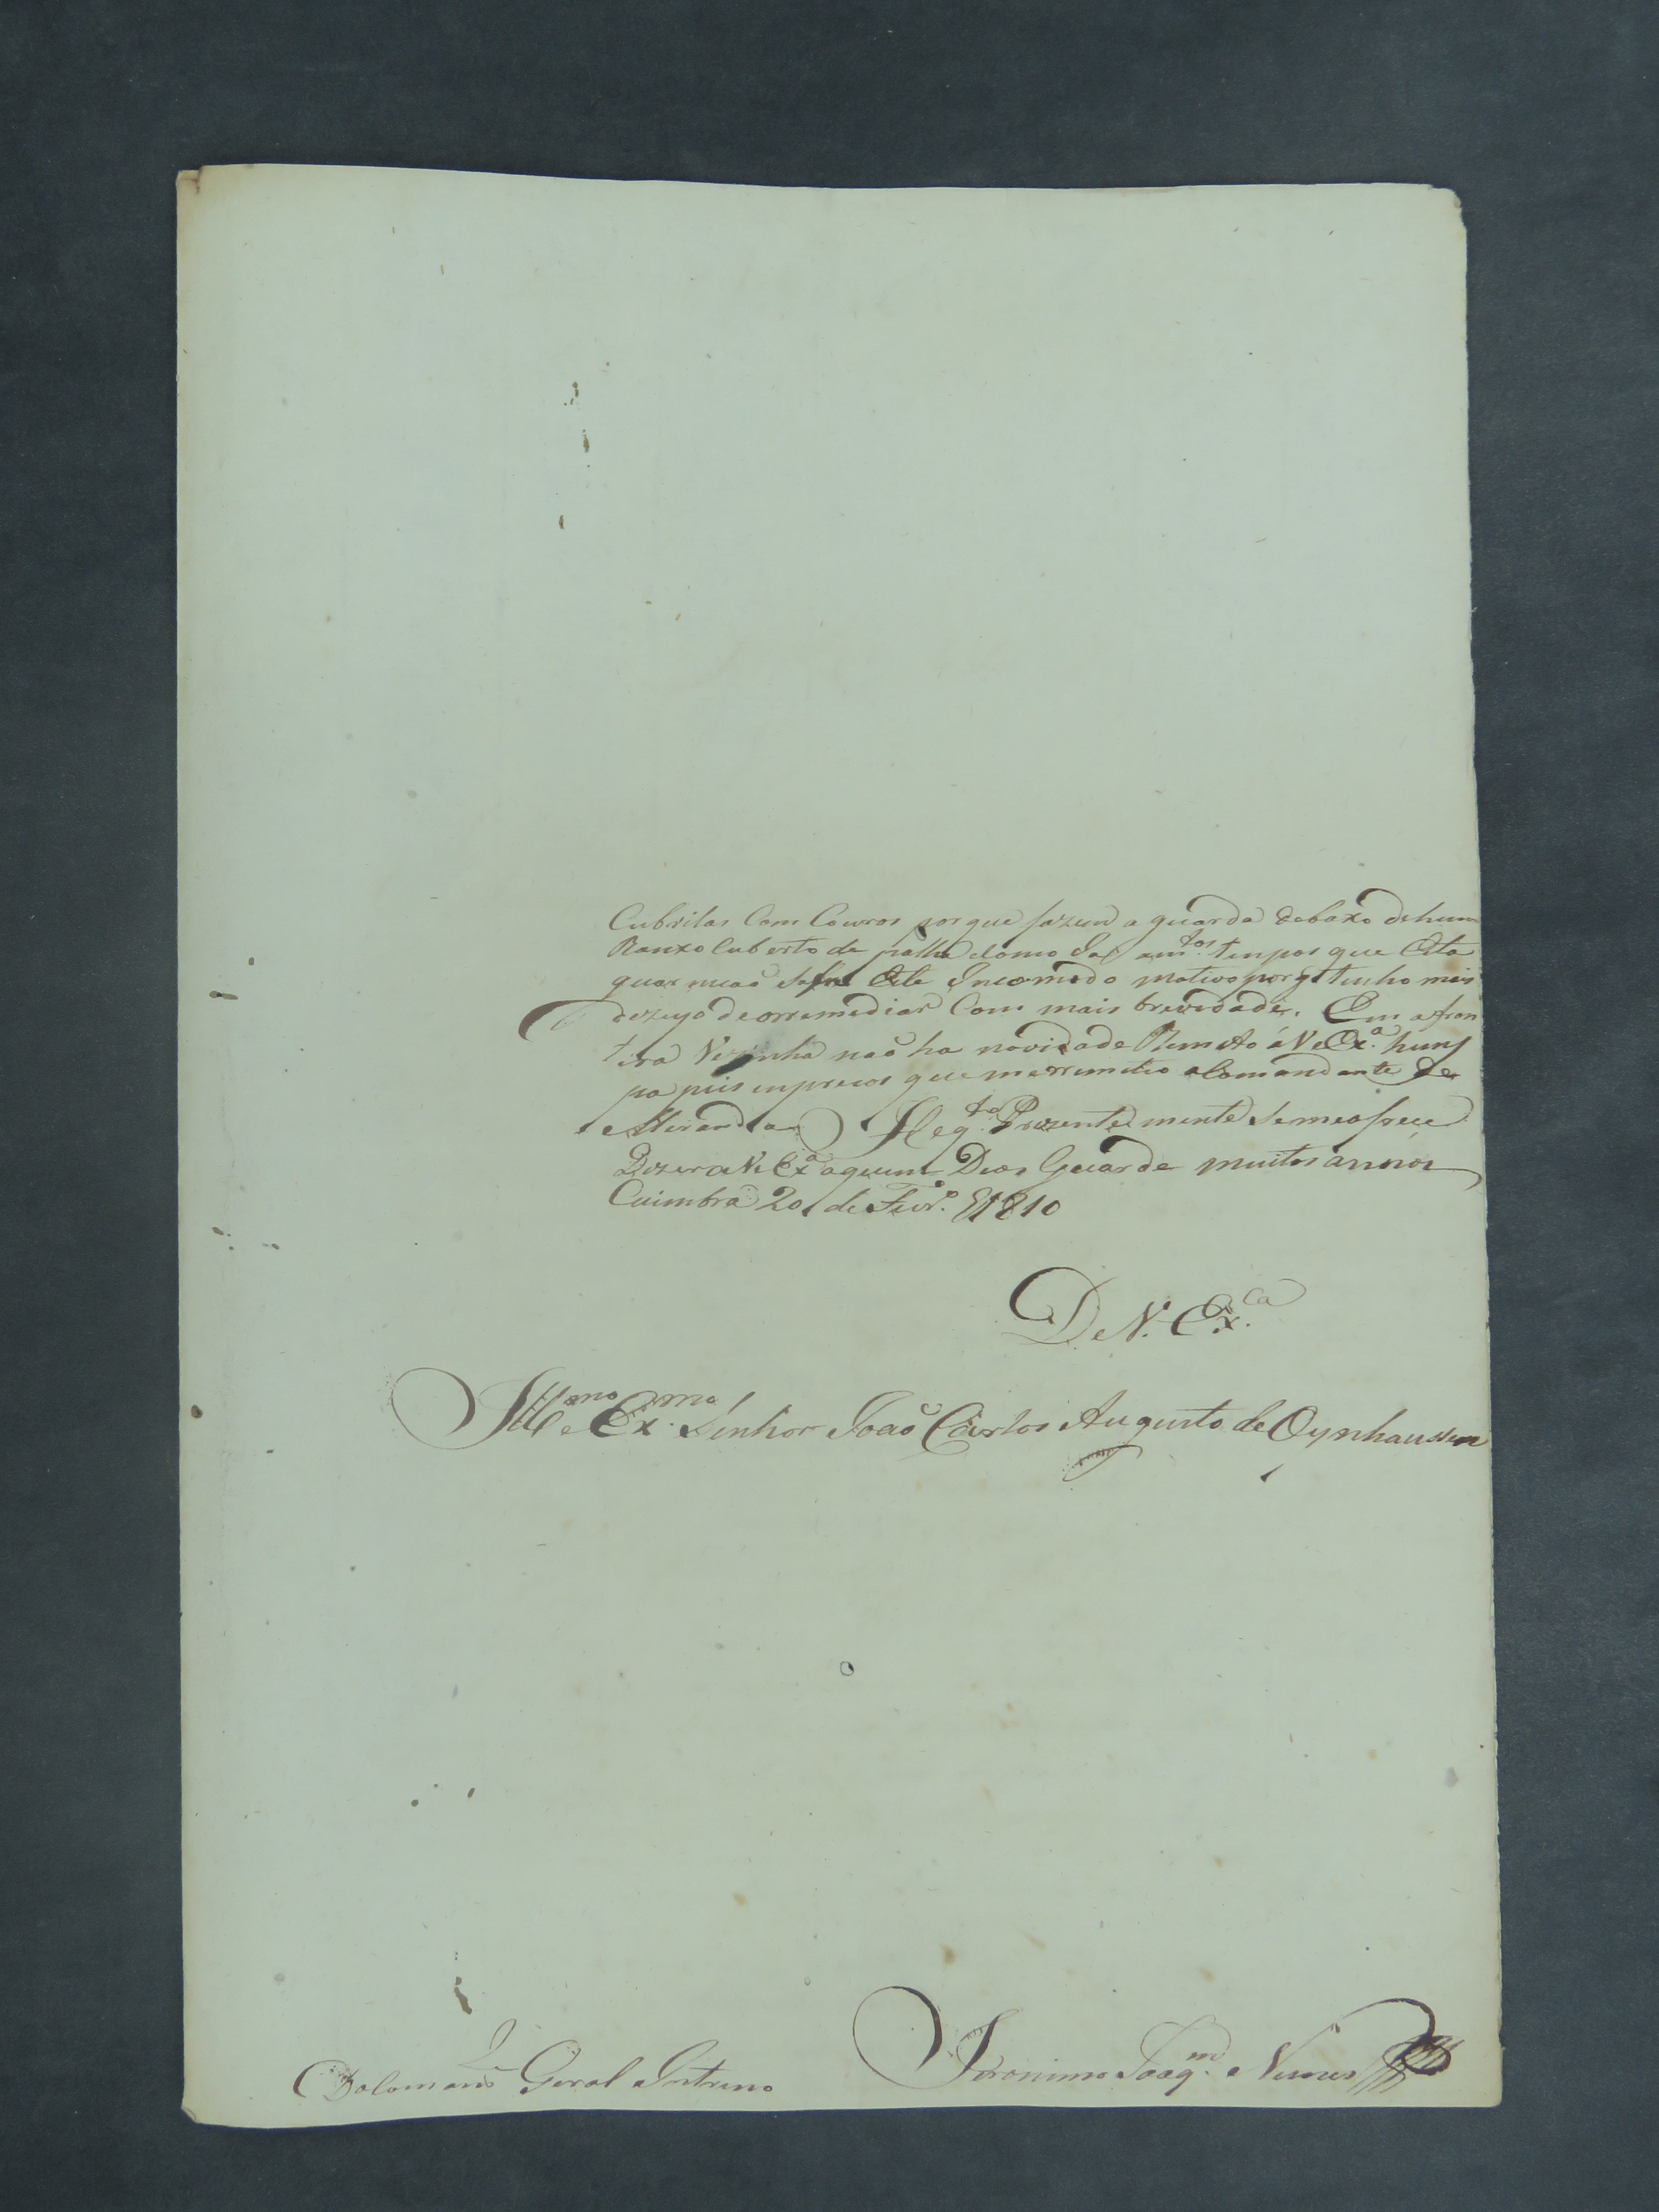 Cubrilas Com Couros porque fazem a guarda debaxo dehum
Ranxo Cuberto de palha e como Ja a m.tos tempos que Esta
guarnicaõ Sofre Este Incomodo motivo porq̃ tenho meis
dezejo de orremediar Com mais brevidade. Em a fron
teira Vezinha naõ ha novidade Remeto á V.Ex.a huns
papeis inprecos que merremeteo o Comandante de
Miranda He q.to Prezentemente Semeofrece
Dizer a V. Ex.a aquem Deos Guarde muitos annos
Cuimbra 20 de Fevr.o d 1810
De V. Ex.ca
Ill.mo e Ex.mo Senhor Joaõ Carlos Augusto de Oynhaussen
Geral Intrino
Jeronimo Joaq.m Nunes